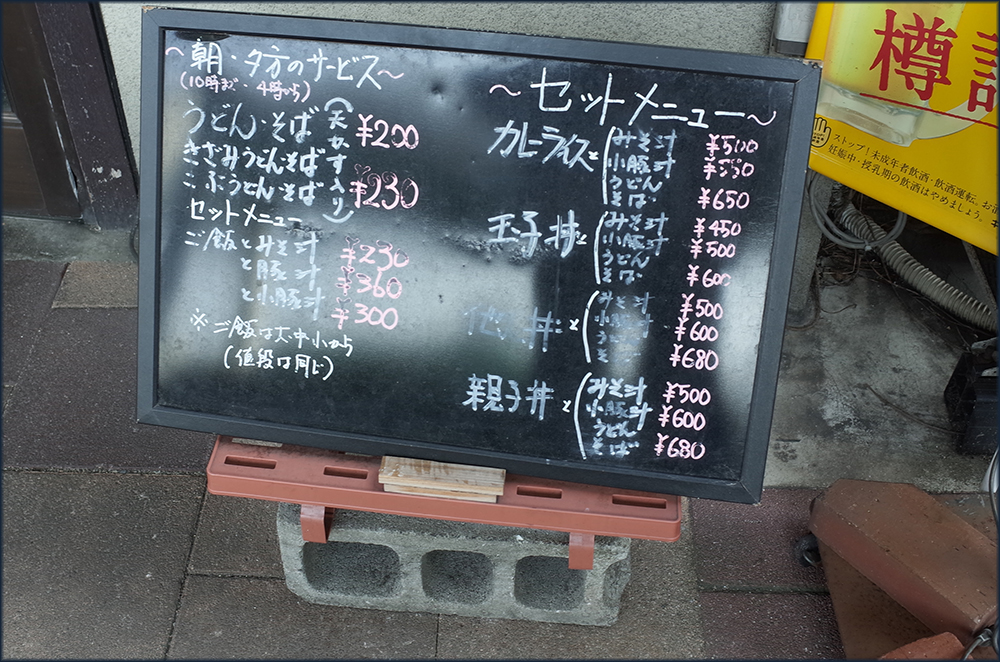 ~朝・夕方のサービス~
(10時まで・4時から)
うどん・そば ¥200
きざみうどん・そば
こぶうどん・そば ¥230
(天かす入り)
セットメニュー
ご飯とみそ汁 ¥230
と豚汁 ¥360
と小豚汁 ¥300
※ご飯は大・中・小から
(値段は同じ)
~セットメニュー~
カレーライスと
みそ汁 ¥500
小豚汁 ¥550
うどん
そば ¥650
玉子丼と
みそ汁 ¥450
小豚汁 ¥500
うどん
そば ¥600
丼と
みそ汁 ¥500
小豚汁 ¥600
うどん
そば ¥680
親子丼と
みそ汁 ¥500
小豚汁 ¥600
うどん
そば ¥680
樽詰
ストップ!未成年者飲酒・飲酒運転。お酒
妊娠中・授乳期の飲酒はやめましょう。